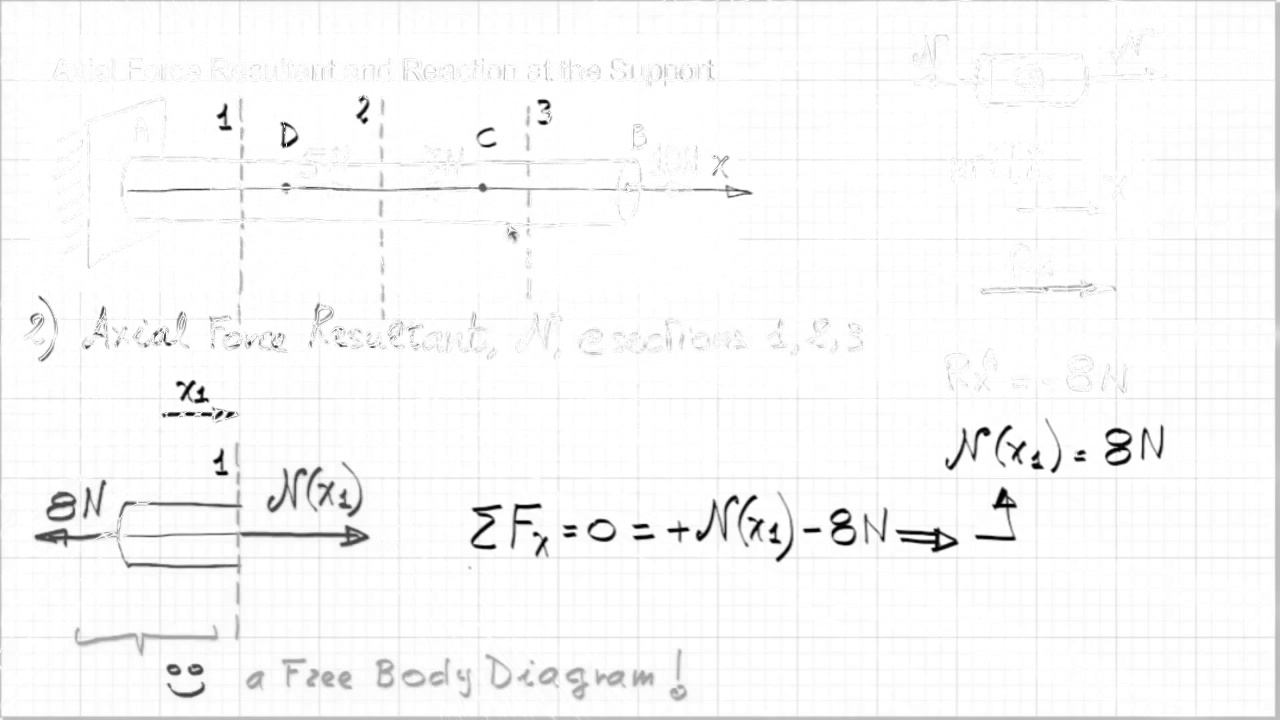 Axial Force Resultant and Reaction at the Support
N N
1 2 3
A D C B
5N 7N 10N x
x
2) Axial Force Resultant, N, @ sections 1, 2, 3
RxA = -8N
x1
N(x1) = 8N
1
8N N(x1)
ΣFx = 0 = +N(x1) - 8N ⇒
a Free Body Diagram!